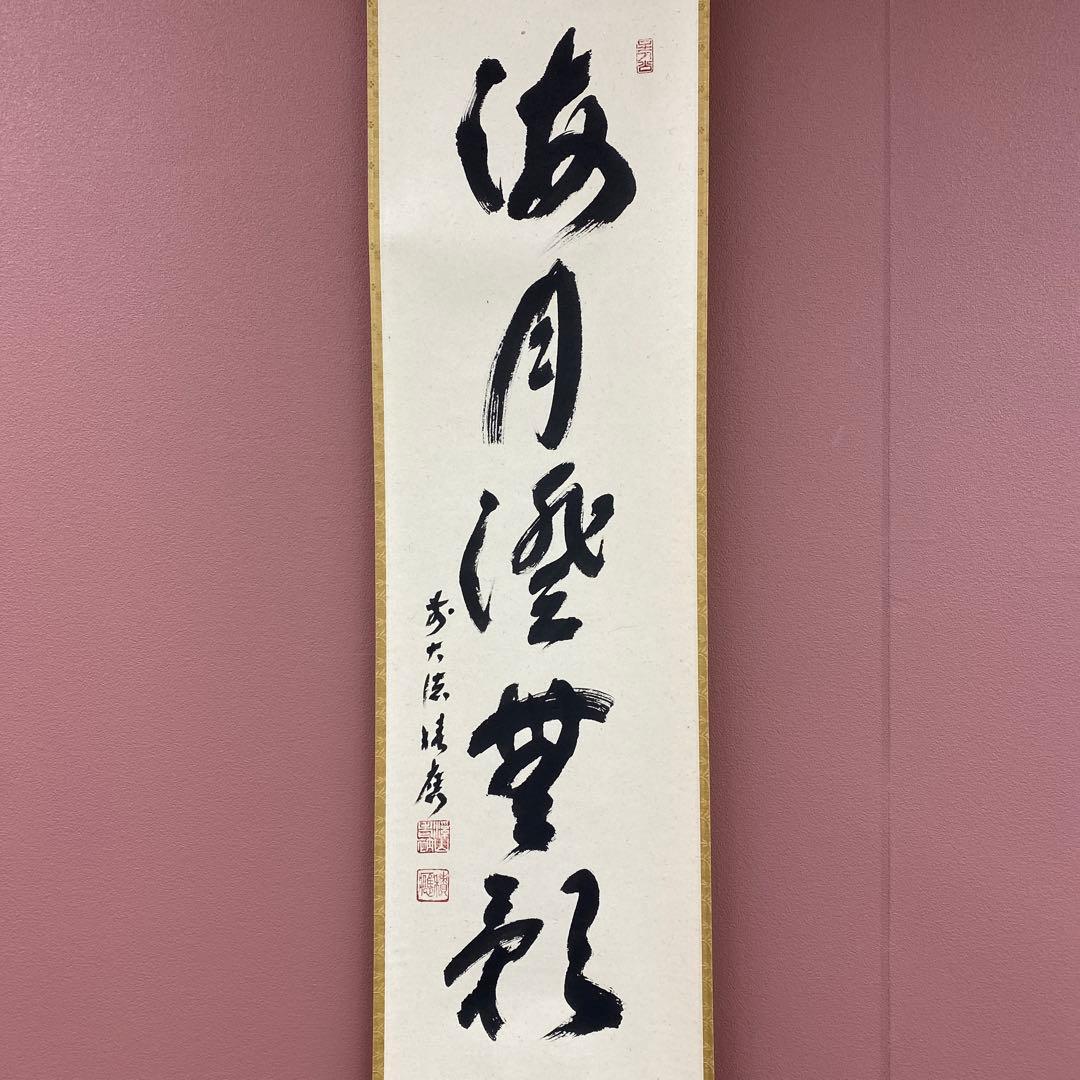 海月澄無影
前大徳積應